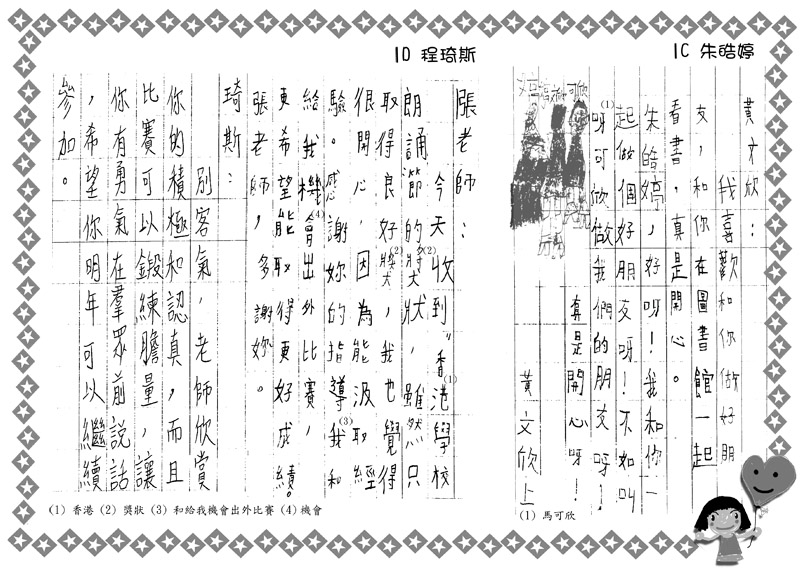 1C 朱皓婷
黃文欣：
我喜歡和你做好朋
友，和你在圖書館一起
看書，真是開心。
朱皓婷，好呀！我和你一
起做個好朋友呀！不如叫
(1)呀可欣做我們的朋友呀！
真是開心呀！
黃文欣上
(1) 馬可欣
1D 程琦斯
張老師：
今天收到"香港(1)學校
朗誦節的獎狀(2)，雖然只
取得良好獎(2)，我也覺得
很開心，因為能汲取經
驗。感謝妳的指導(3)我和
給我機(4)會出外比賽，
更希望能取得更好成績。
張老師，多謝妳。
琦斯：
別客氣，老師欣賞
你的積極和認真，而且
比賽可以鍛練膽量，讓
你有勇氣在羣眾前說話
，希望你明年可以繼續
參加。
(1) 香港 (2) 獎狀 (3) 和給我機會出外比賽 (4) 機會